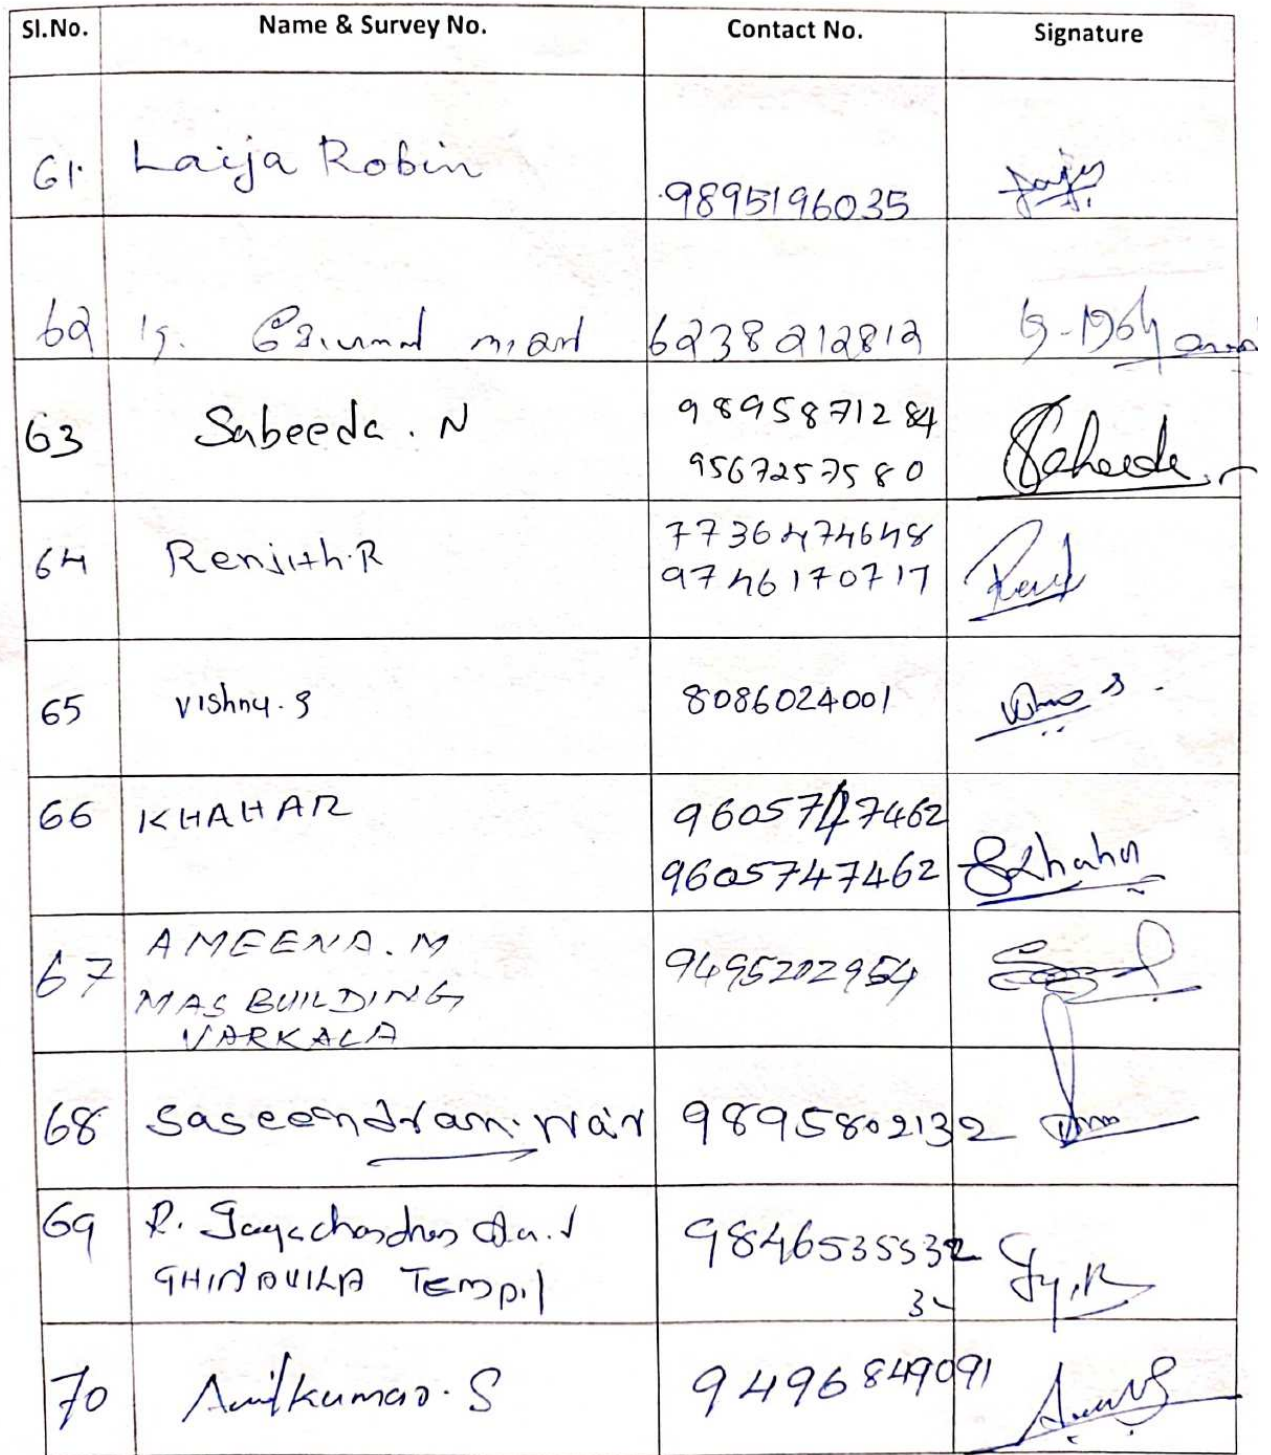 Sl.No. Name & Survey No. Contact No. Signature
61. Laija Robin 9895196035
62 6238212812
63 Sabeeda. N 9895871284
9567257580
64 Renjith.R 7736474648
9746170717
65 Vishnu. S 8086024001
66 KHAHAR 9605747462
9605747462
67 AMEENA. M 9495202954
MAS BUILDING
VARKALA
68 Saseendran. 9895802132
69 R. Jayachandran 9846535532
TEMPIL 32
70 Anilkumar. S 9496849091